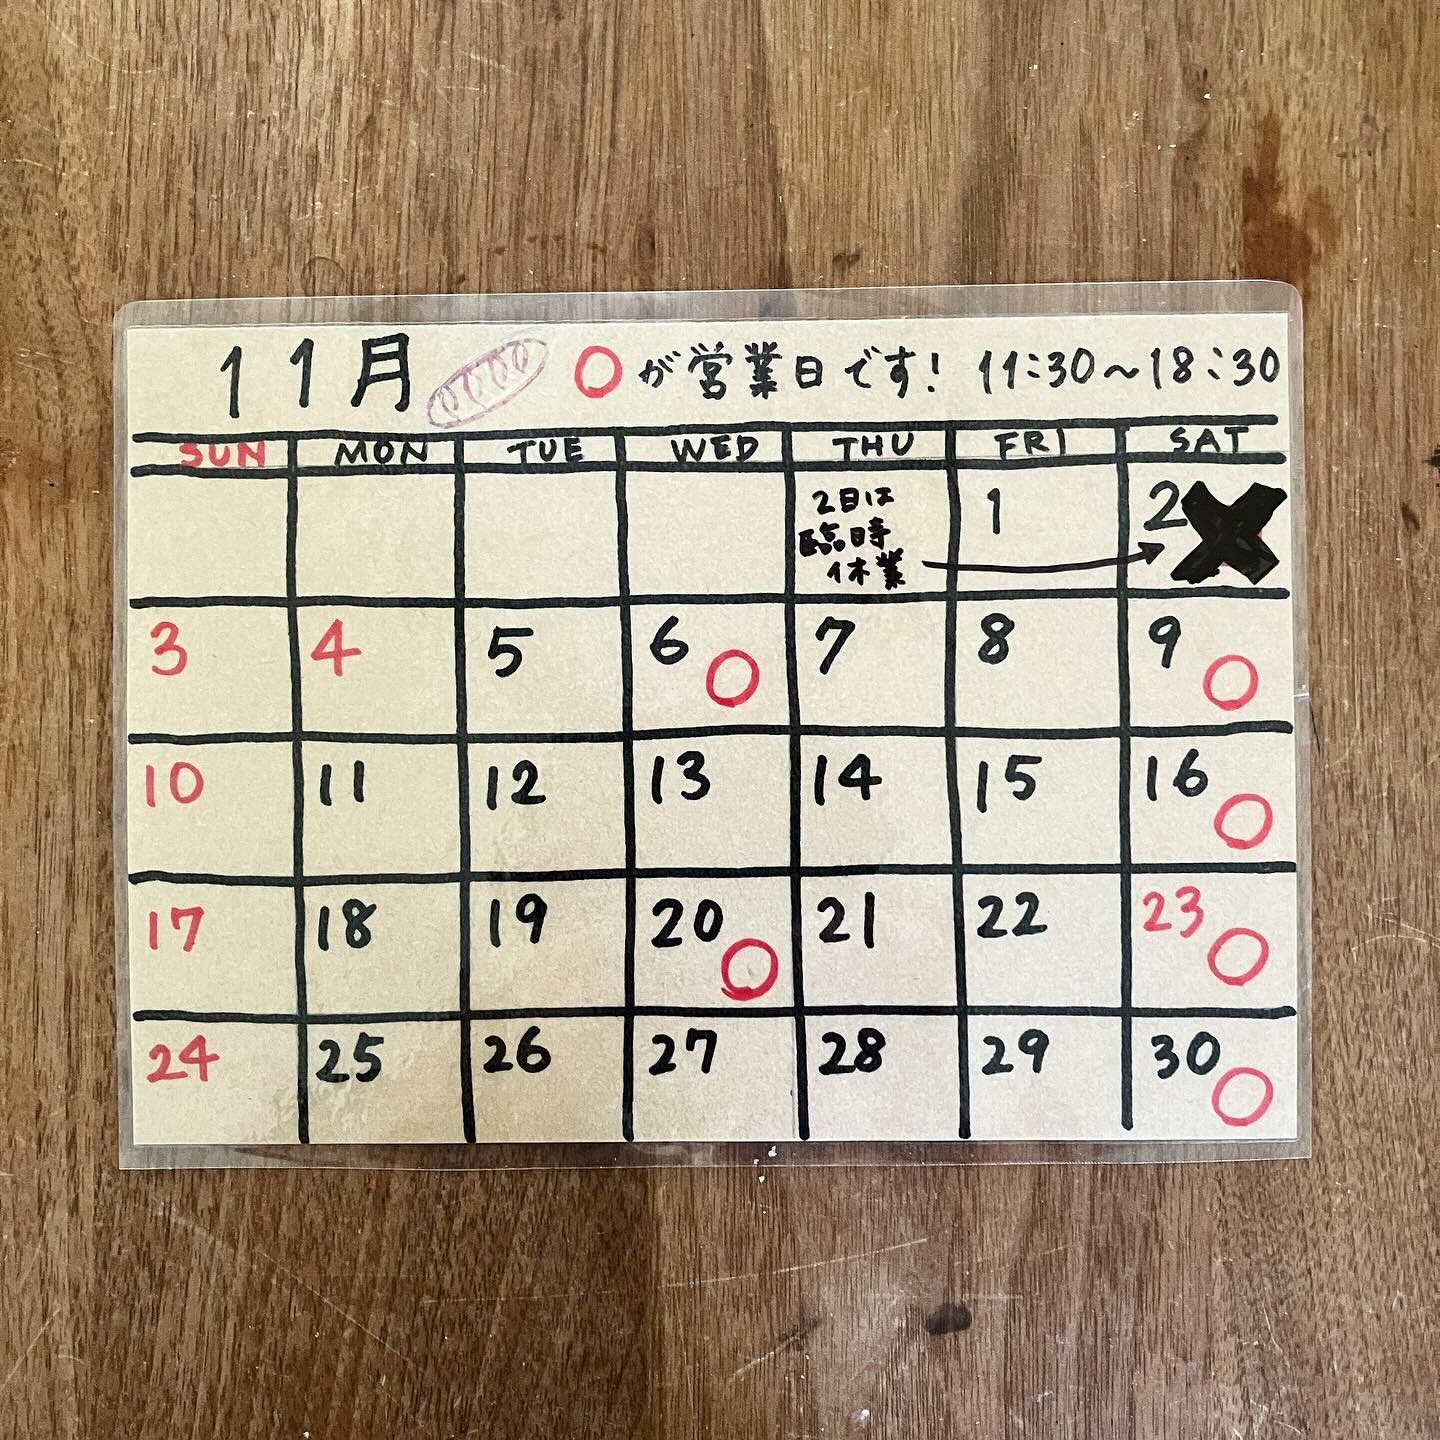 11月 ○が営業日です! 11:30~18:30
SUN MON TUE WED THU FRI SAT
2日は
臨時
休業
1 2
3 4 5 6 7 8 9
10 11 12 13 14 15 16
17 18 19 20 21 22 23
24 25 26 27 28 29 30